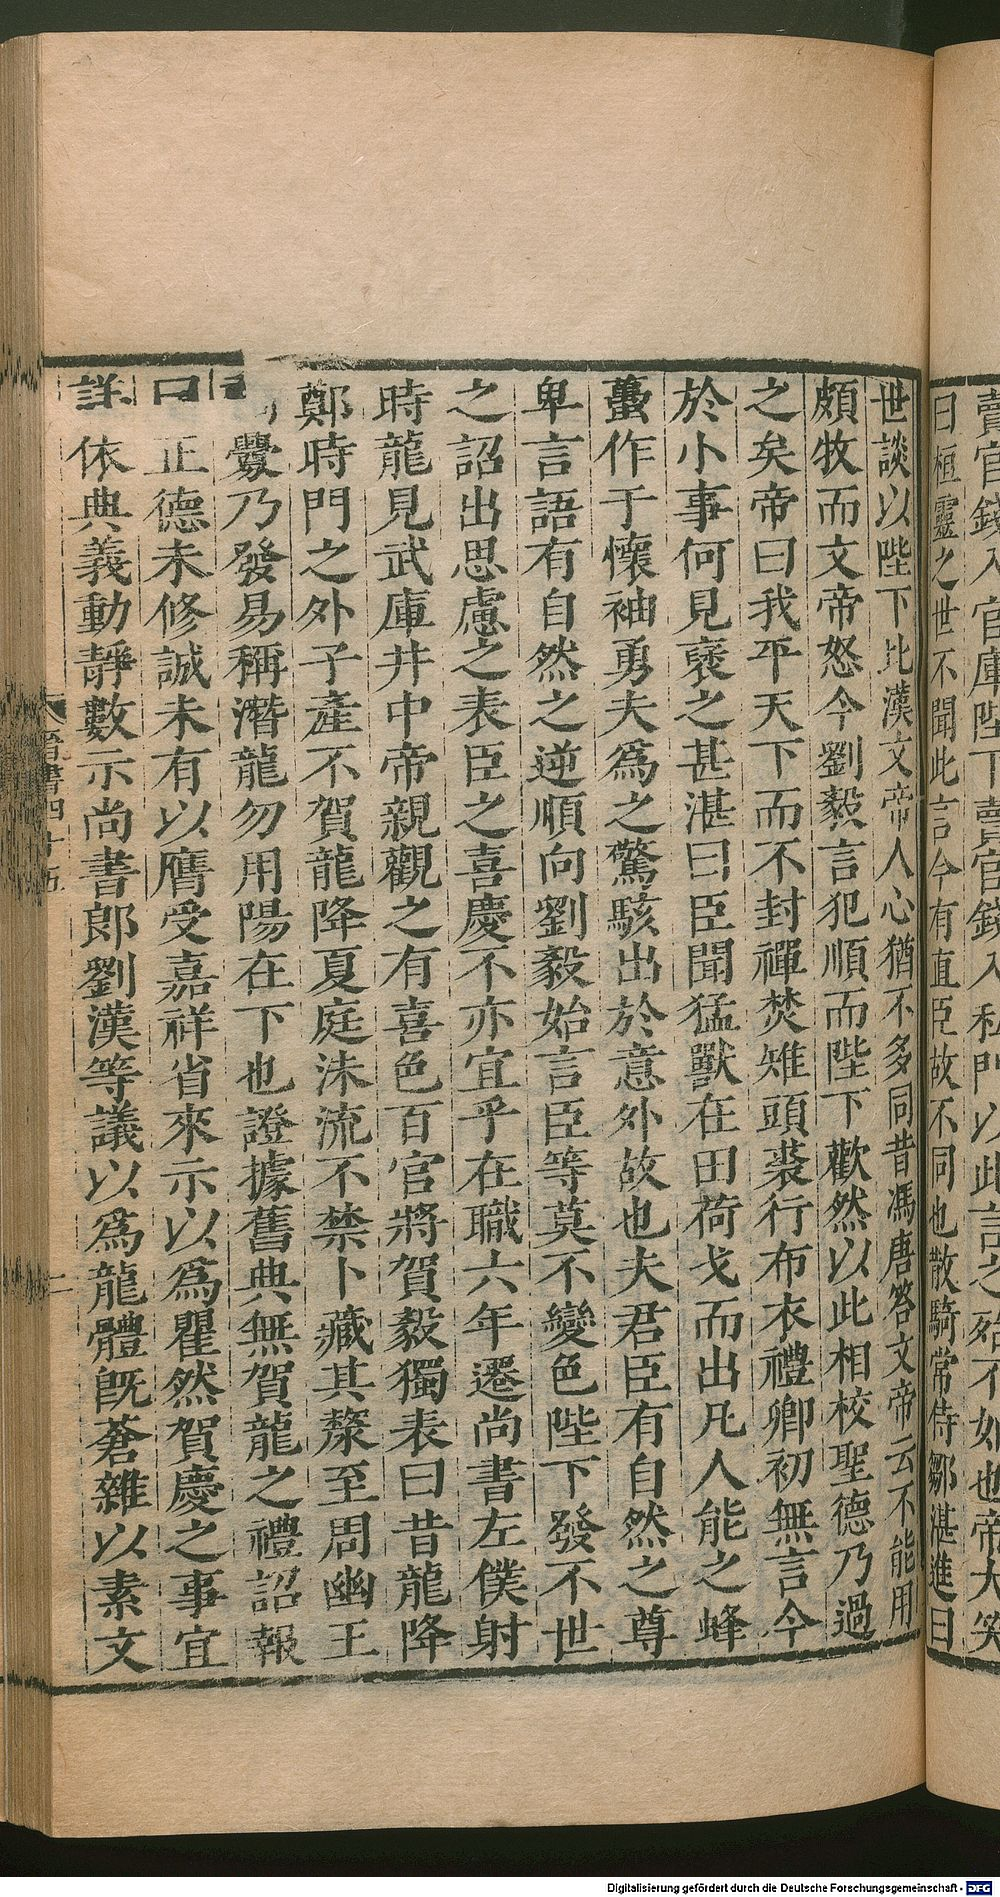 賣官錢入官庫陛下賣官錢入私門以此言之殆不如也帝大笑
曰桓靈之世不聞此言今有直臣故不同也散騎常侍鄒湛進曰
世談以陛下比漢文帝人心猶不多同昔馮唐答文帝云不能用
頗牧而文帝怒今劉毅言犯順而陛下歡然以此相校聖德乃過
之矣帝曰我平天下而不封禪焚雉頭裘行布衣禮卿初無言今
於小事何見襃之甚湛曰臣聞猛獸在田荷戈而出凡人能之蜂
蠆作于懷袖勇夫爲之驚駭出於意外故也夫君臣有自然之尊
卑言語有自然之逆順向劉毅始言臣等莫不變色陛下發不世
之詔出思慮之表臣之喜慶不亦宜乎在職六年遷尚書左僕射
時龍見武庫井中帝親觀之有喜色百官將賀毅獨表曰昔龍降
鄭時門之外子產不賀龍降夏庭沬流不禁卜藏其漦至周幽王
釁乃發易稱潛龍勿用陽在下也證據舊典無賀龍之禮詔報
曰正德未修誠未有以膺受嘉祥省來示以爲瞿然賀慶之事宜
詳依典義動靜數示尚書郎劉漢等議以爲龍體旣蒼雜以素文
晉書四十五
Digitalisierung gefördert durch die Deutsche Forschungsgemeinschaft - DFG